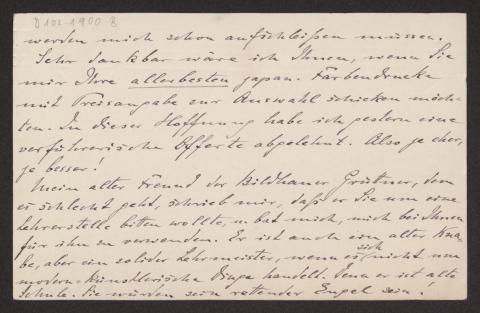 D 102-1900 B
werden mich schon aufschließen müssen.
Sehr dankbar wäre ich Ihnen, wenn Sie
mir Ihre allerbesten japan. Farbendrucke
mit Preisangabe zur Auswahl schicken möch-
ten. In dieser Hoffnung habe ich gestern eine
verführerische Offerte abgelehnt. Also je eher,
je besser!
Mein alter Freund der Bildhauer Grüttner, dem
es schlecht geht, schrieb mir, daß er Sie um eine
Lehrerstelle bitten wollte, u. bat mich, mich bei Ihnen
für ihn zu verwenden. Er ist auch ein alter Kna-
be, aber ein solider Lehrmeister, wenn es sich nicht um
modern-künstlerische Dinge handelt. Denn er ist alte
Schule. Sie würden sein rettender Engel sein!